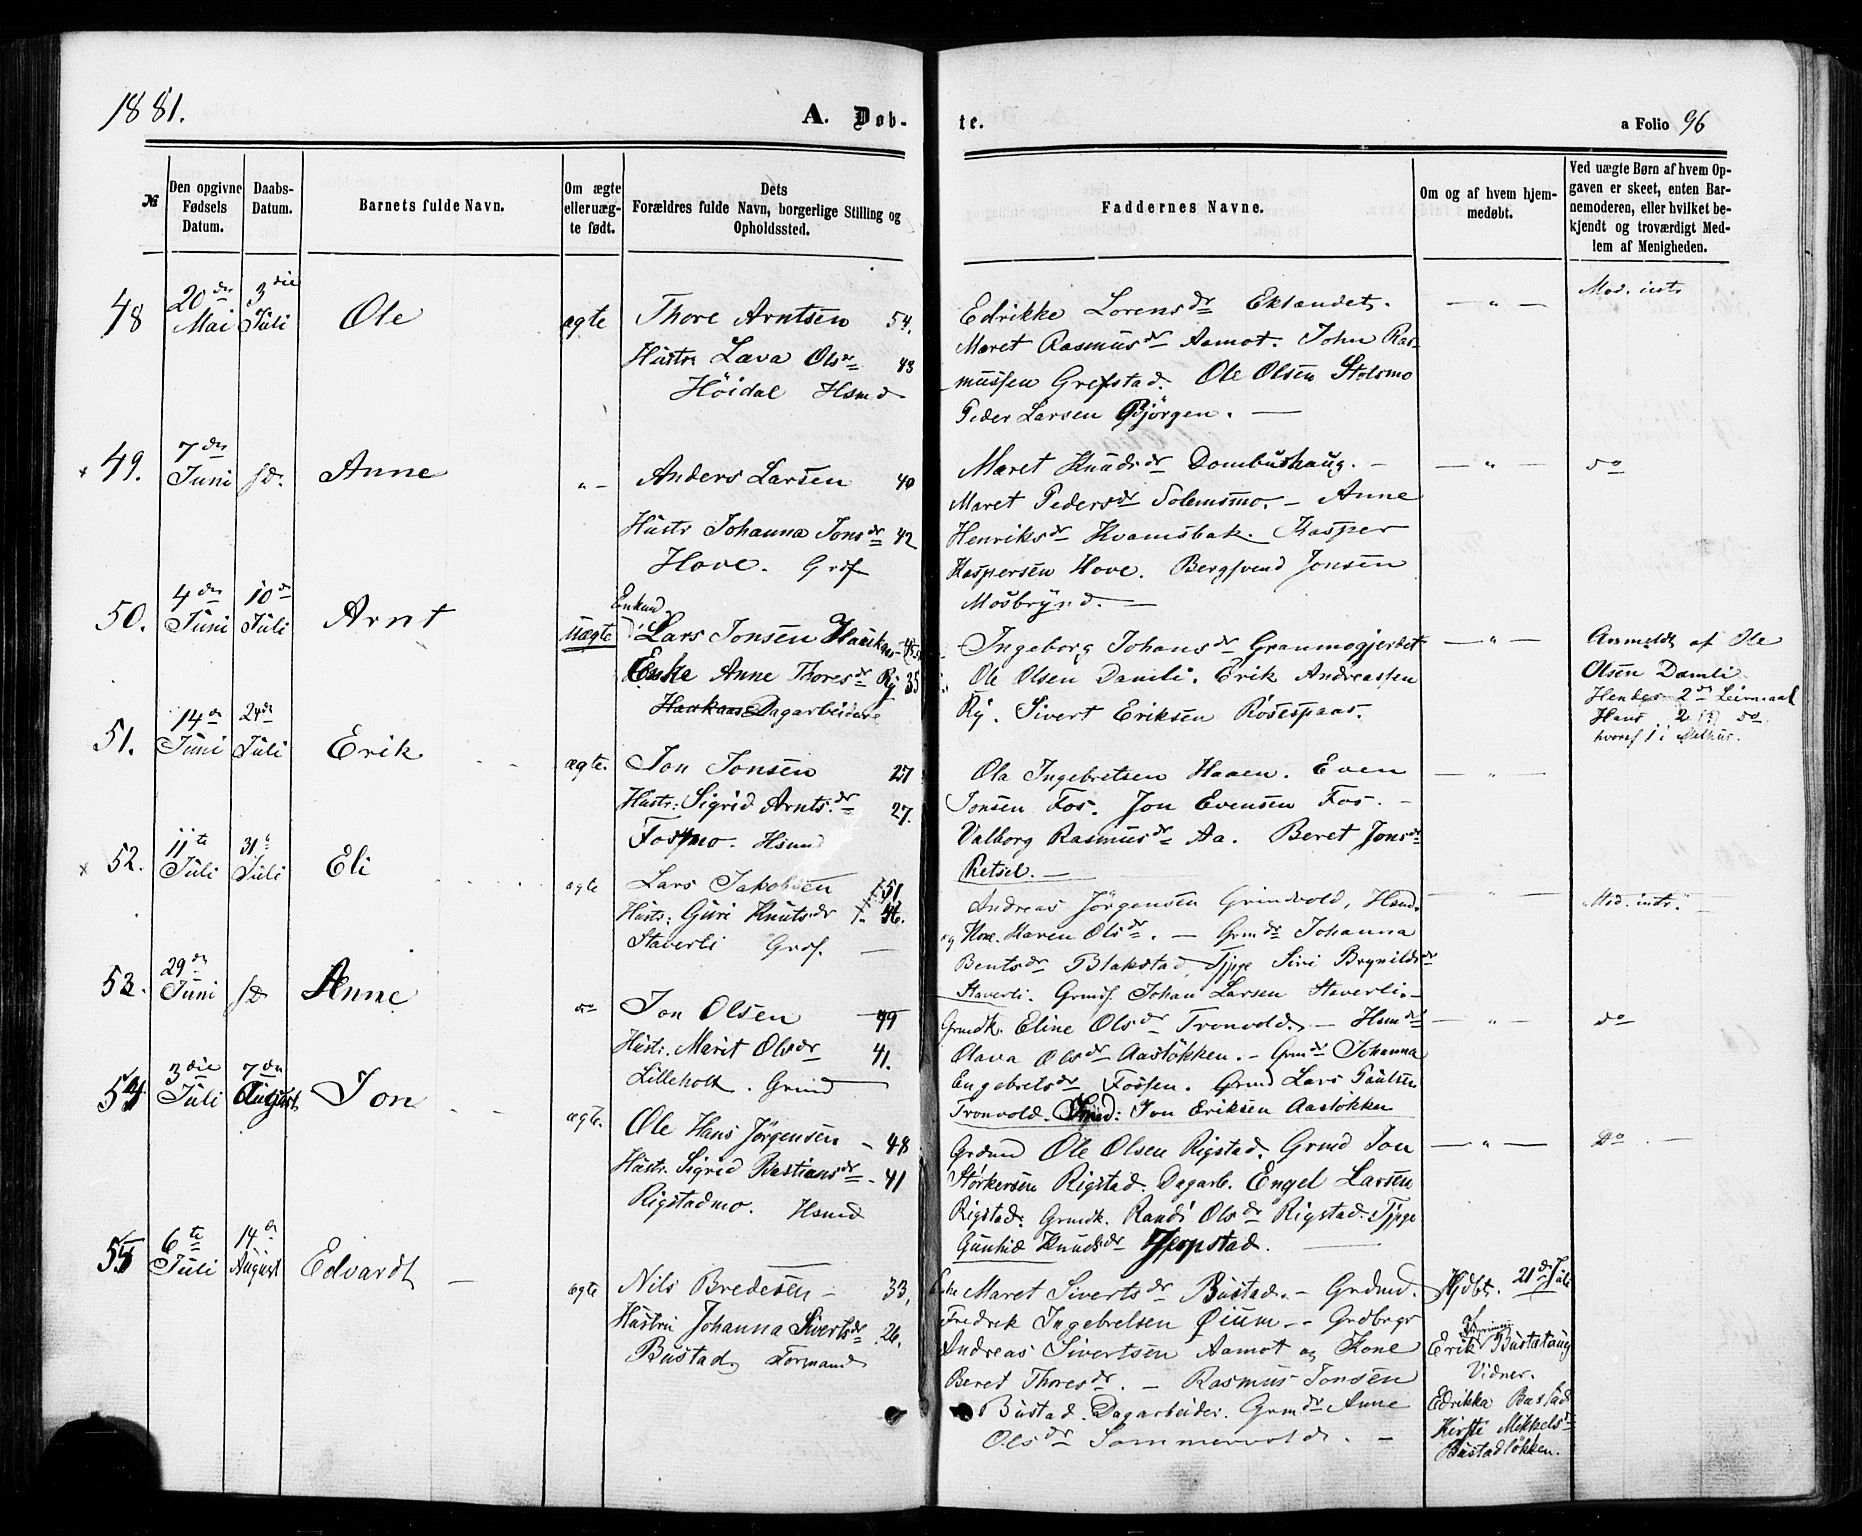 1881.
A. Døb-
te.
a Folio 96
№
Den opgivne
Fødsels
Datum.
Daabs-
Datum.
Barnets fulde Navn.
Om ægte
eller uæg-
te født.
Dets
Forældres fulde Navn, borgerlige Stilling og
Opholdssted.
Faddernes Navne.
Om og af hvem hjem-
medøbt.
Ved uægte Børn af hvem Op-
gaven er skeet, enten Bar-
nemoderen, eller hvilket be-
kjendt og troværdigt Med-
lem af Menigheden.
48
20de
Mai
3die
Juli
Ole
ægte
Thore Arntsen 54.
Hustr. Lava Olsdr 43
Höidal Hsmd
Edrikke Lorensdr Eklandet.
Maret Rasmusdr Aamot. John Ras-
mussen Grefstad. Ole Olsen Stolsmo
Peder Larsen Bjørgen. —
— " —
Mod. intr
x 49.
7de
Juni
sd.
Anne
" -
Anders Larsen 40
Hustr Johanna Jonsdr 42
Hove. Grdf
Maret Knudsdr Dombushaug. -
Maret Pedersdr Solemsmo. - Anne
Henriksdr Kvamsbak. Kasper
Kaspersen Hove. Bergsvend Jonsen
Mosbrynd. —
— " —
do
50.
4de
Juni
10de
Juli
Arnt
uægte
Enkemd
Lars Jonsen Haukaas
Enke Anne Thoresdr Ry 35
Haukaas Dagarbeidere
Ingeborg Johansdr Granmogjerdet
Ole Olsen Damli. Erik Andreassen
Ry. Sivert Eriksen Rosespaas.
— " —
Anmeldt af Ole
Olsen Damli
Hendes 2det Leirmaal
Hans 2 (?) do
hvoraf 1 i Melhus.
51.
14de
Juni
24de
Juli
Erik
ægte.
Jon Jonsen 27
Hustr: Sigrid Arntsdr 27.
Fossmo. Hsmd
Ola Ingebretsen Haaen. Even
Jonsen Fos. Jon Evensen Fos. -
Valborg Rasmusdr Aa. Beret Jonsdr
Retsel. —
— " —
x 52.
11te
Juli
31te
Juli
Eli
ægte
Lars Jakobsen 51
Hustr: Guri Knutsdr 46.
Staverli Grdf. —
Andreas Jörgensen Grindvold, Hsmd.
og Kone Karen Olsdr. - Grmdr Johanna
Bentsdr Blakstad, Tjpge Siri Brynildsdr
Staverli. Grmdf. Johan Larsen Staverli. -
— " —
Mod. intr. —
53.
29de
Juni
sd
Anne
do
Jon Olsen 49
Hustr. Marit Olsdr 41.
Lilleholt. Grmd —
Grmdk. Eline Olsdr Tronvold. - Hsmdr
Olava Olsdr Aasløkken. - Grmdr Johanna
Engebretsdr Fossen. Grmd Lars Paulsen
Tronvold. Smed: Jon Eriksen Aasløkken
— " —
do
54
3die
Juli
7de
August
Jon
ægte.
Ole Hans Jörgensen - 48
Hustr. Sigrid Bastiansdr - 41
Rigstadmo. Hsmd
Grdmd Ole Olsen Rigstad. Grmd Jon
Störkersen Rigstad. Dagarb. Engel Larsen
Rigstad. Grmdk. Randi Olsdr Rigstad. Tjpge
Gunhild Knudsdr Jerpstad. —
— " —
Do . —
55
6te
Juli
14de
August
Edvardt —
ægte
Nils Bredesen - 33,
Hustru Johanna Sivertsdr 26.
Bustad, Formand
Enke Maret Sivertsdr Bustad. - Grdmd.
Fredrik Ingebretsen Øium - - Grdbrgr
Andreas Sivertsen Aamot og Kone
Beret Thoresdr. - Rasmus Jonsen
Bustad. Dagarbeider. Grmdr Anne
Olsdr Sommervold. -
Hjdbt. 21de Juli
af
Erik Bustadhaug
Vidner.
Edrikka Bustad
Kirste Mikkelsdr
Bustadløkken.